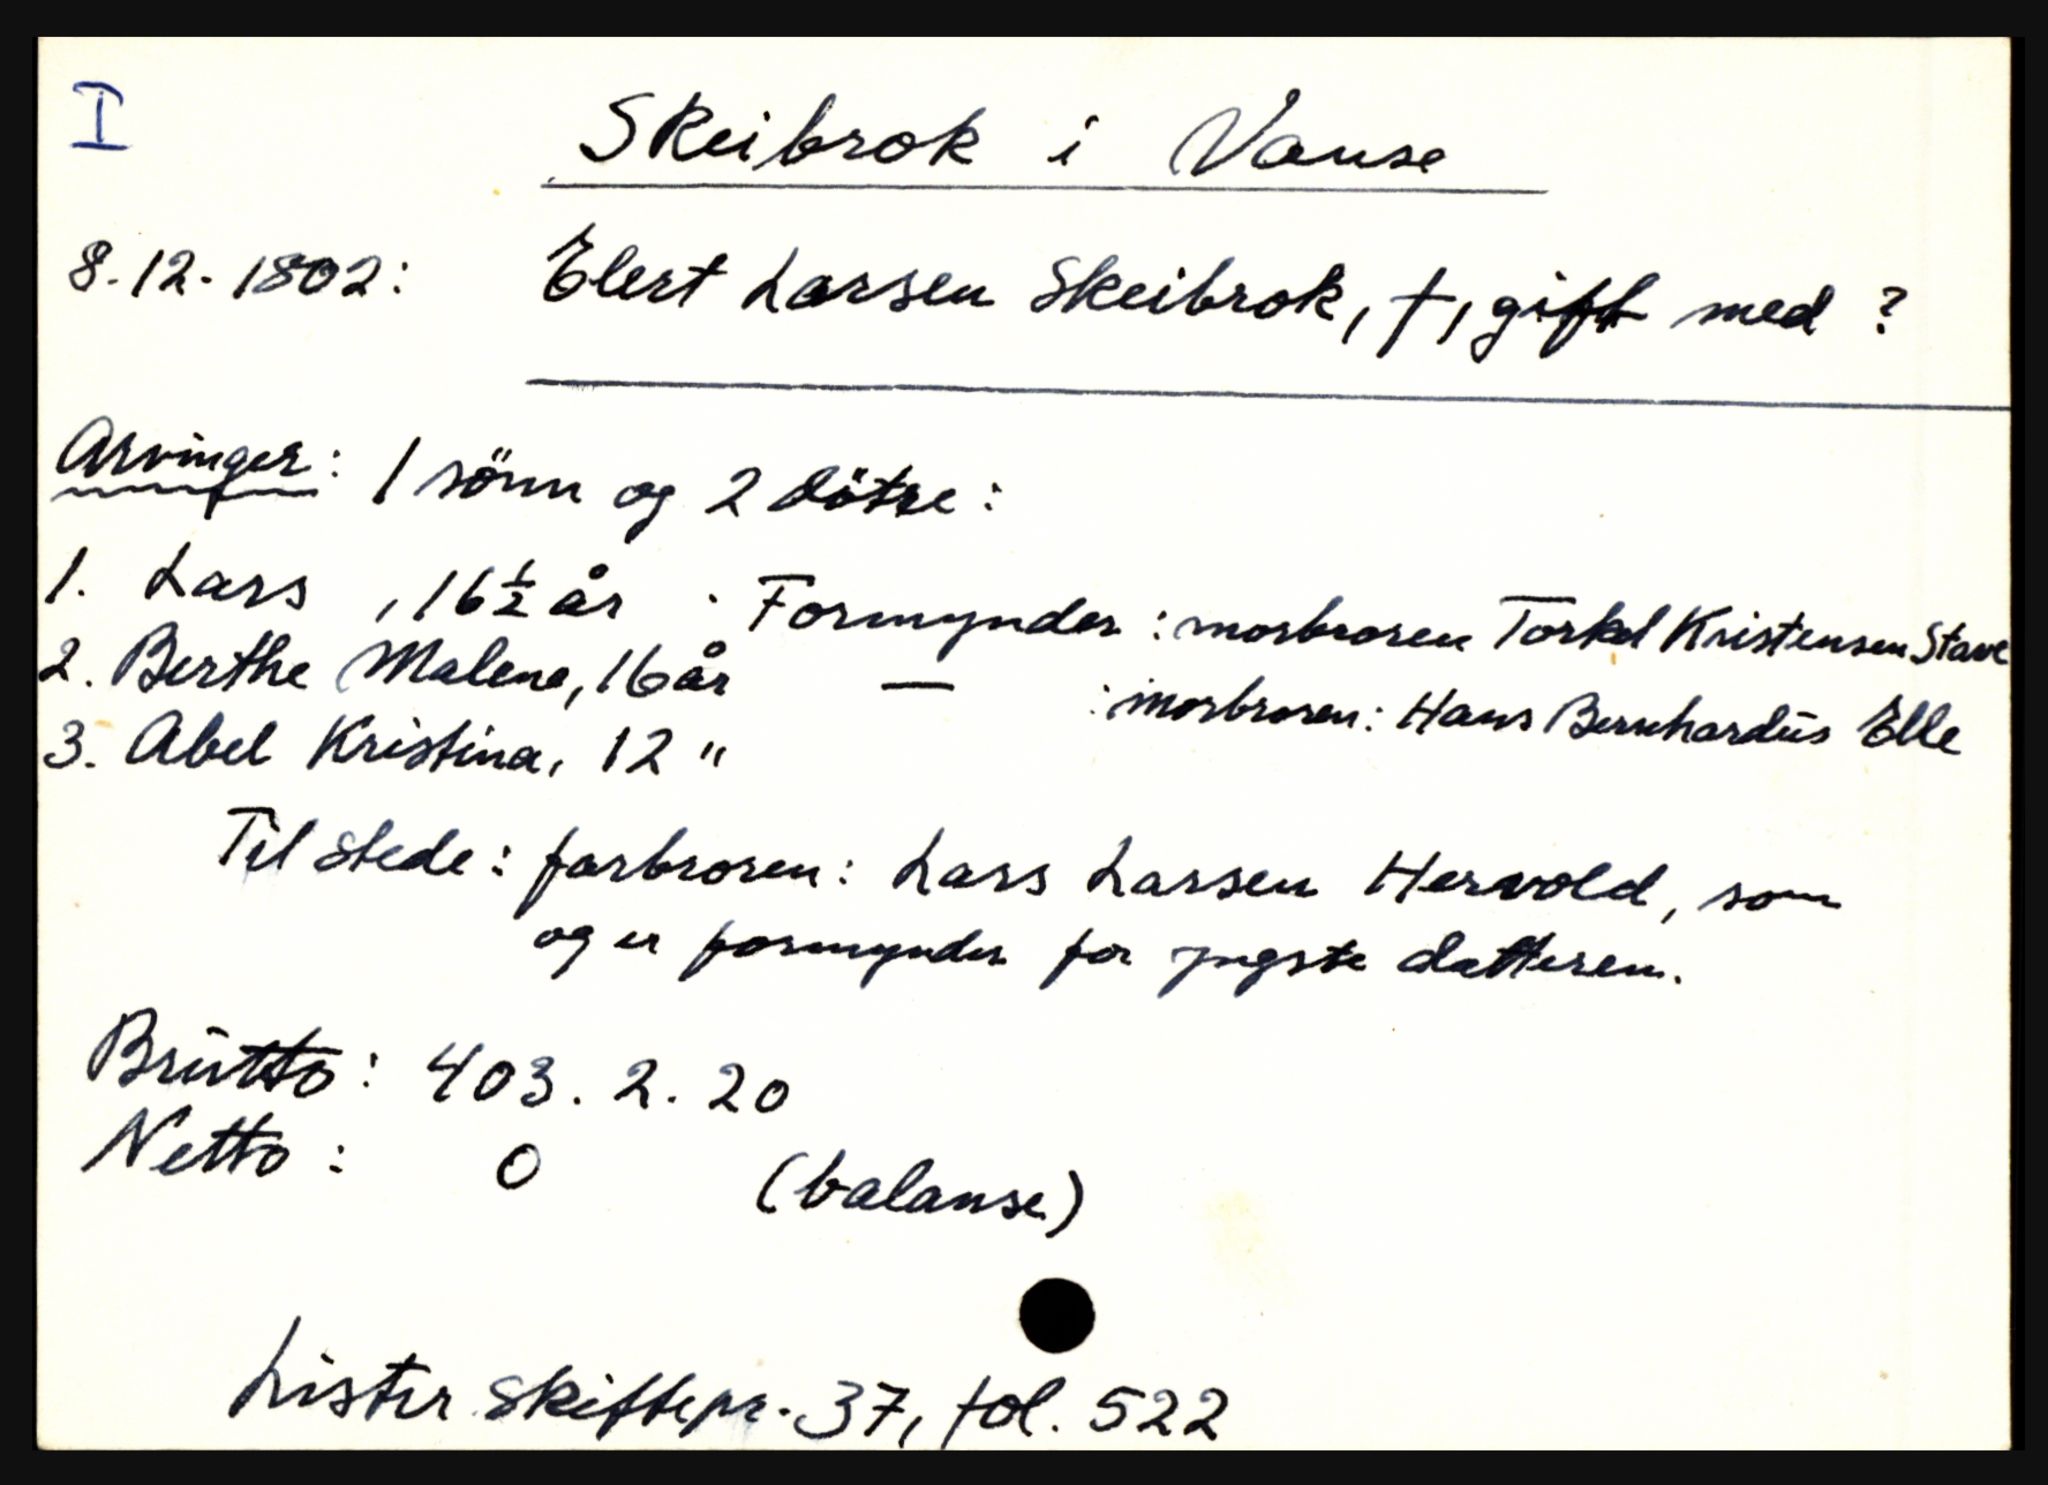 I
Skeibrok i Vanse
8.12.1802: Elert Larsen Skeibrok, †, gift med ?
Arvinger: 1 sönn og 2 dötre:
1. Lars , 16 ½ år . Formynder : morbroren Torkel Kristensen Stave
2. Berthe Malene, 16 år — : morbroren: Hans Bernhardus Elle
3. Abel Kristina, 12 "
Til stede : farbroren : Lars Larsen Hervold, som
og er formynder for yngste datteren.
Brutto : 403. 2. 20
Netto : 0 (balanse)
Lister skiftepr. 37, fol. 522